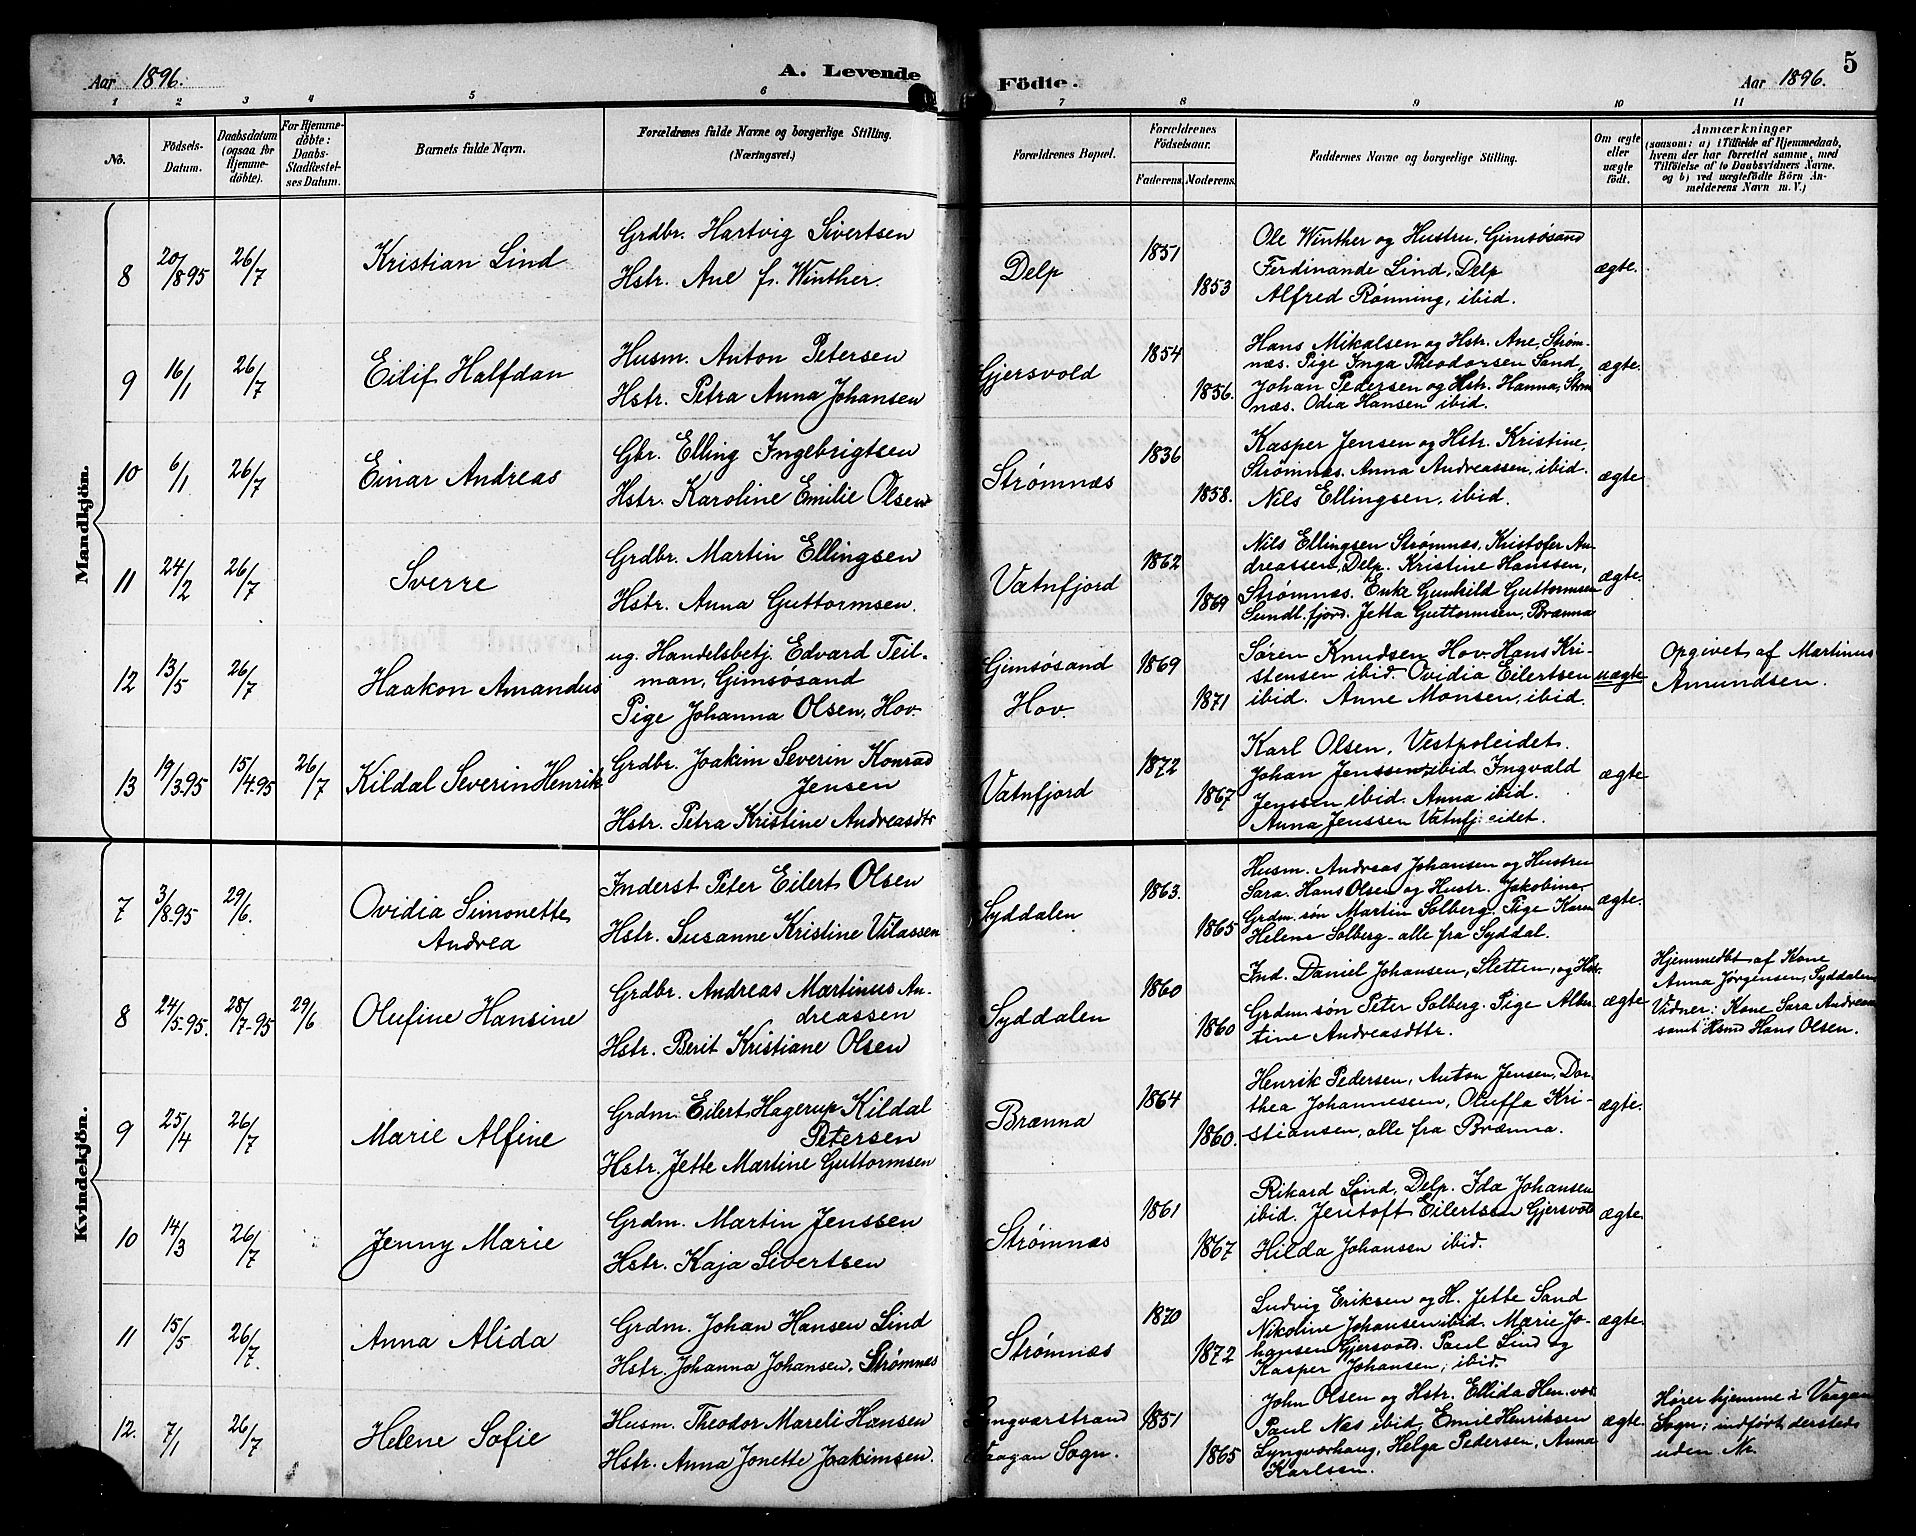 Aar 1896. A. Levende Födte. Aar 1896. 5
1 2 3 4 5 6 7 8 9 10 11
No.
Födsels-
Datum.
Daabsdatum
(ogsaa for
Hjemme-
döbte).
For Hjemme-
döbte:
Daabs-
Stadfæstel-
ses Datum.
Barnets fulde Navn.
Forældrenes fulde Navne og borgerlige Stilling.
(Næringsvei.)
Forældrenes Bopæl.
Forældrenes
Födselsaar.
Faderens. Moderens.
Faddernes Navne og borgerlige Stilling.
Om ægte
eller
uægte
födt.
Anmærkninger
(saasom: a) i Tilfælde af Hjemmedaab,
hvem der har forrettet samme, med
Tilföielse af to Daabsvidners Navne.
og b) ved uægtefödte Börn An-
melderens Navn m. V.)
Mandkjön.
8
20/8 95
26/7
Kristian Lind
Grdbr. Hartvig Sivertsen
Hstr. Ane f. Winther.
Delp
1851
1853
Ole Winther og Hustru, Gimsøsand
Ferdinande Lind, Delp
Alfred Rønning, ibid.
ægte.
9
16/1
26/7
Eilif Halfdan
Husm. Anton Petersen
Hstr. Petra Anna Johansen
Gjersvold
1854
1856.
Hans Mikalsen og Hstr. Ane, Strøm-
næs. Pige Inga Theodorsen Sand,
Johan Pedersen og Hstr. Hanna, Strøm
næs. Odia Hansen ibid.
ægte.
10
6/1
26/7
Einar Andreas
Gbr. Elling Ingebrigtsen
Hstr. Karoline Emilie Olsen
Strømnæs
1836
1858.
Kasper Jensen og Hstr. Kristine,
Strømnæs. Anna Andreassen, ibid.
Nils Ellingsen, ibid.
ægte
11
24/2
26/7
Sverre
Grdbr. Martin Ellingsen
Hstr. Anna Guttormsen.
Vatnfjord
1862
1869
Nils Ellingsen Strømnæs, Kristofer An-
dreassen, Delp. Kristine Hanssen,
Strømnæs. Enke Gunhild Guttormsen
Sundl. fjord. Jetta Guttormsen, Brænna
ægte.
12
13/5
26/7
Haakon Amandus
ug. Handelsbetj. Edvard Teil-
man, Gimsøsand
Pige Johanna Olsen, Hov.
Gimsøsand
Hov.
1869
1871
Søren Knudsen Hov. Hans Kri-
stensen ibid. Ovidia Eilertsen
ibid. Anne Monsen, ibid.
uægte
Opgivet af Martinus
Amundsen.
13
19/3 95
15/4-95
26/7
Kildal Severin Henrik
Grdbr. Joakim Severin Konrad
Jensen
Hstr. Petra Kristine Andreasdtr
Vatnfjord
1872
1867
Karl Olsen, Vestpoleidet.
Johan Jenssen ibid. Ingvald
Jenssen ibid. Anna ibid.
Anna Jenssen Vatnfj. eidet.
ægte
Kvindekjön.
7
3/8-95
29/6.
Ovidia Simonette
Andrea
Inderst Peter Eilert Olsen
Hstr. Susanne Kristine Vilassen
Syddalen
1863.
1865
Husm. Andreas Johansen og Hustru
Sara. Hans Olsen og Hustr. Jakobine,
Grdm. søn Martin Solberg. Pige Karen
Helene Solberg - alle fra Syddal.
ægte.
8
24/5-95.
28/7-95
29/6
Olufine Hansine
Grdbr. Andreas Martinus An-
dreassen
Hstr. Berit Kristiane Olsen
Syddalen
1860
1860
Ind. Daniel Johansen, Sletten, og Hstr.
Grdm. søn Peter Solberg. Pige Alber-
tine Andreasdttr.
ægte
Hjemmedbt af Kone
Anna Jørgensen, Syddalen
Vidner: Kone Sara Andreas
samt Hsmd Hans Olsen.
9
25/4
26/7
Marie Alfine
Grdm. Eilert Hagerup Kildal
Petersen
Hstr. Jette Martine Guttormsen
Brænna
1864
1860.
Henrik Pedersen, Anton Jensen, Dor-
thea Johannessen, Oluffa Kri-
stiansen, alle fra Brænna.
ægte.
10
14/3
26/7
Jenny Marie
Grdm. Martin Jenssen
Hstr. Kaja Sivertsen
Strømnæs
1861
1867
Rikard Lind, Delp. Ida Johansen
ibid. Jentoft Eilertsen Gjersvold
Hilda Johansen ibid.
ægte.
11
15/5
26/7.
Anna Alida
Grdm. Johan Hansen Lind
Hstr. Johanna Johansen, Strømnæs
Strømnæs
1870
1872
Ludvig Eriksen og H. Jette Sand
Nikoline Johansen ibid. Marie Jo-
hansen Gjersvold. Paul Lind og
Kasper Johansen, ibid.
ægte.
12.
7/1
26/7
Helene Sofie
Husm. Theodor Mareli Hansen
Hstr. Anna Jonette Joakimsen.
Lyngværstrand
Vaagan Sogn.
1851
1865
John Olsen og Hstr. Ellida Hen.vær
Paul Næs ibid. Emil Henriksen
Lyngværhaug, Helga Pedersen, Anna
Karlsen.
ægte.
Hører hjemme i Vaagan
Sogn; indført dersteds
uden Nr.